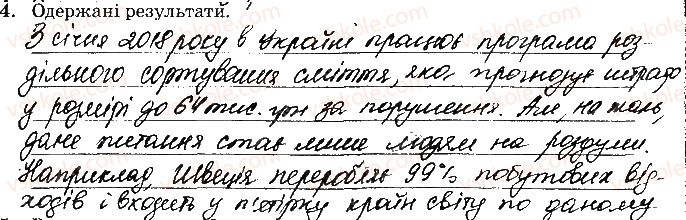 4. Одержані результати.
З січня 2018 року в Україні працює програма роз-
дільного сортування сміття, яка прогнозує штраф
у розмірі до 64 тис. грн за порушення. Але, на жаль,
дане питання стає лише людям на роздуми.
Наприклад, Швеція переробляє 99% побутових від-
ходів і входить у п'ятірку країн світу по даному